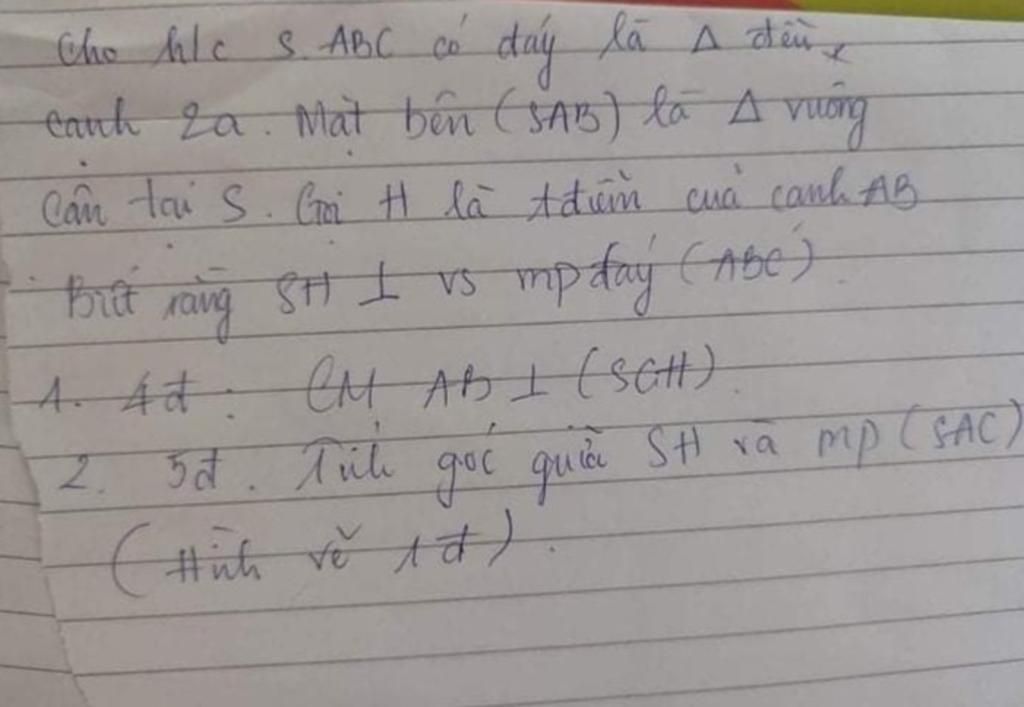 Cho h/c S.ABC có đáy là Δ đều
cạnh 2a. Mặt bên (SAB) là Δ vuông
Cân tại S. Gọi H là tđiểm của cạnh AB
Biết rằng SH ⊥ vs mp đáy (ABC).
1. 4đ: CM AB ⊥ (SCH).
2. 5đ. Tính góc giữa SH và mp (SAC)
(Hình vẽ 1đ).